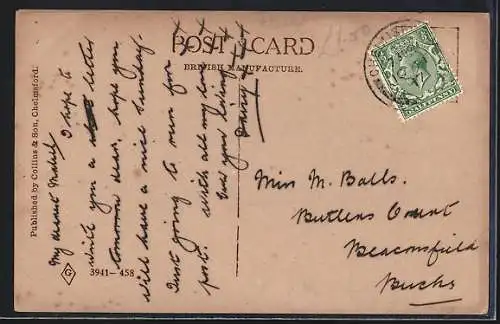 POST CARD
BRITISH MANUFACTURE.
Published by Collins & Son, Chelmsford.
G
3941-458
My dearest Mabel
I hope to
write you a letter
tomorrow dear, hope you
will have a nice Sunday.
Just going to run for
post. with all my love
Ever your loving
Miss M. Balls.
Butlers Court
Beaconsfield
Bucks
HALFPENNY